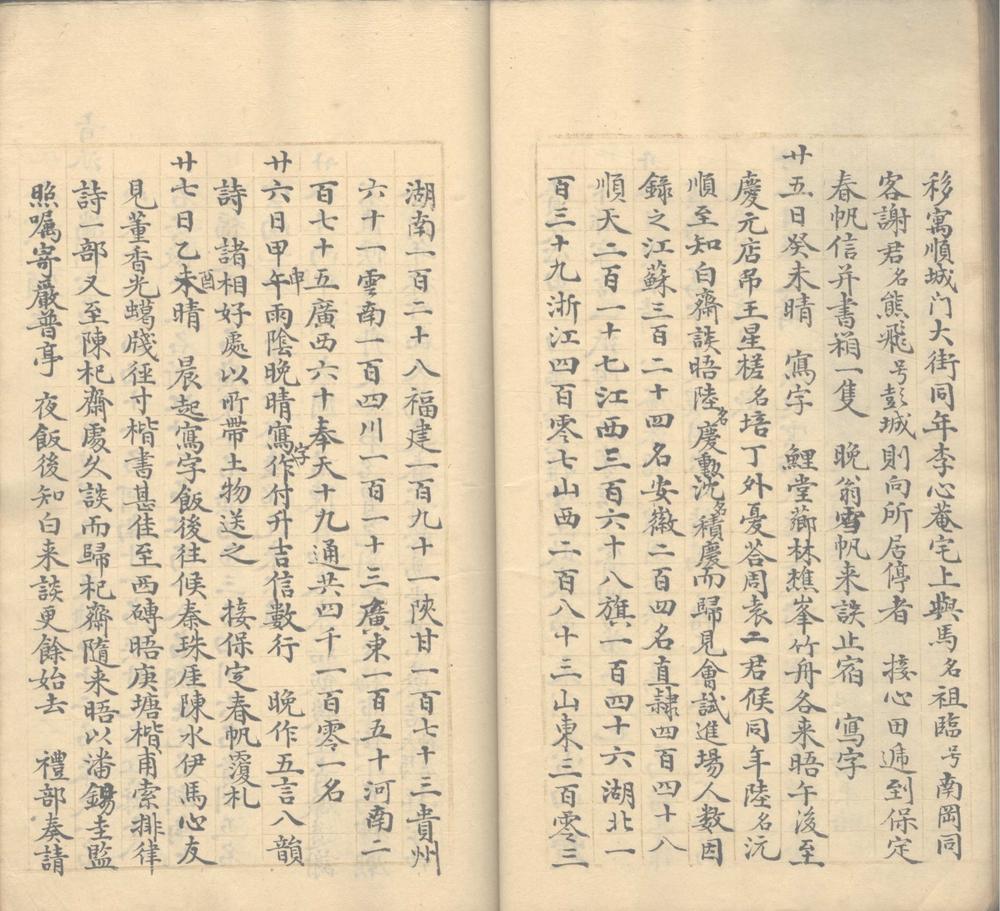 移寓順城门大街同年李心菴宅上與馬名祖臨号南岡同
客謝君名熊飛号彭城則向所居停者　接心田遞到保定
春帆信并書箱一隻　晚翁雪帆来談止宿　寫字
廿五日癸未晴　寫字　鯉堂薌林樵峯竹舟各来晤午後至
慶元店吊王星槎名培丁外憂荅周袁二君候同年陸名沅
順至知白齋談晤陸名慶勳沈名積慶而歸見會試進場人数因
錄之江蘇三百二十四名安徽二百四名直隸四百四十八
順天二百一十七江西三百六十八旗一百四十六湖北一
百三十九浙江四百零七山西二百八十三山東三百零三
湖南一百二十八福建一百九十一陜甘一百七十三貴州
六十一雲南一百四川一百一十三廣東一百五十河南二
百七十五廣西六十奉天十九通共四千一百零一名
廿六日甲午申雨陰晚晴寫作字付升吉信數行　晚作五言八韻
詩　諸相好處以所帶土物送之　接保定春帆覆札
廿七日乙未酉晴　晨起寫字飯後往候秦珠厓陳水伊馬心友
見董香光蠲牋徑寸楷書甚佳至西磚晤庚塘楷甫索排律
詩一部又至陳杞齋處久談而歸杞齋隨来晤以潘錫圭監
照嘱寄嚴普亭　夜飯後知白来談更餘始去　禮部奏請